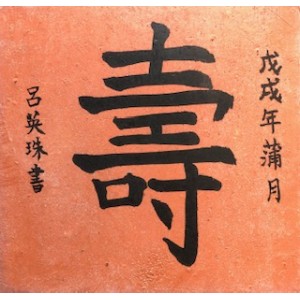 戊戌年蒲月
壽
呂英珠書